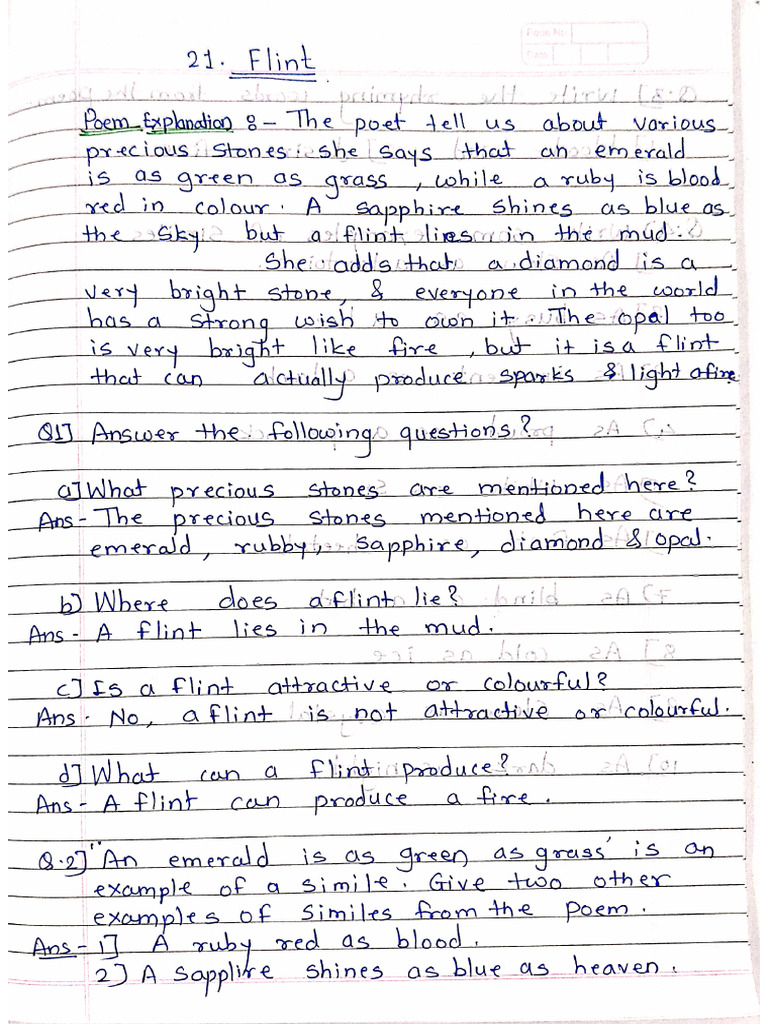 21. Flint
Poem Explanation :- The poet tell us about various
precious stones. she says that an emerald
is as green as grass, while a ruby is blood
red in colour. A sapphire shines as blue as
the sky but a flint lies in the mud.
She adds that a diamond is a
very bright stone, & everyone in the world
has a strong wish to own it. The opal too
is very bright like fire, but it is a flint
that can actually produce sparks & light a fire
Q1] Answer the following questions?
a] What precious stones are mentioned here?
Ans - The precious stones mentioned here are
emerald, rubby, sapphire, diamond & opal.
b) Where does a flint lie?
Ans - A flint lies in the mud.
c] Is a flint attractive or colourful?
Ans - No, a flint is not attractive or colourful.
d] What can a flint produce?
Ans - A flint can produce a fire.
Q.2] "An emerald is as green as grass" is an
example of a simile. Give two other
examples of similes from the poem.
Ans - 1] A ruby red as blood.
2] A sapplire shines as blue as heaven.